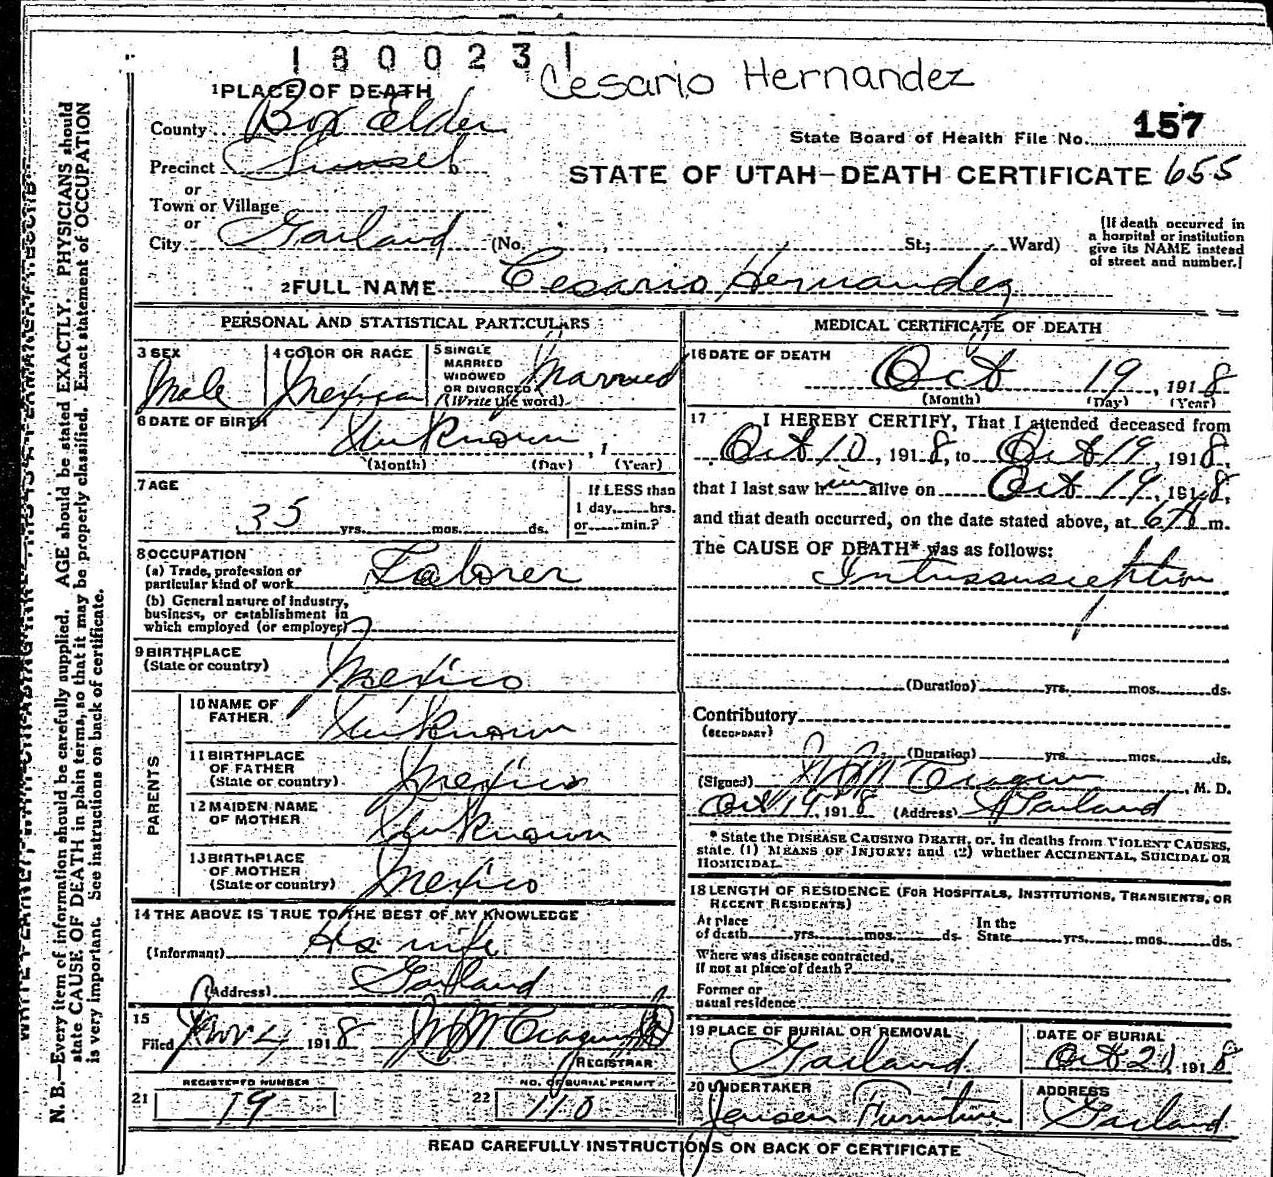 1800231
Cesario Hernandez
1 PLACE OF DEATH
County Box Elder
State Board of Health File No. 157
Precinct Sunset
STATE OF UTAH—DEATH CERTIFICATE 655
or
Town or Village
or
City Garland (No. , St.; Ward)
[If death occurred in a hospital or institution give its NAME instead of street and number.]
2 FULL NAME Cesario Hernandez
PERSONAL AND STATISTICAL PARTICULARS
3 SEX Male
4 COLOR OR RACE Mexican
5 SINGLE MARRIED WIDOWED OR DIVORCED (Write the word) Married
6 DATE OF BIRTH Unknown , 1
(Month) (Day) (Year)
7 AGE
35 yrs. mos. ds.
If LESS than 1 day, hrs. or min.?
8 OCCUPATION
(a) Trade, profession or particular kind of work Laborer
(b) General nature of industry, business, or establishment in which employed (or employer)
9 BIRTHPLACE
(State or country) Mexico
PARENTS
10 NAME OF FATHER Unknown
11 BIRTHPLACE OF FATHER (State or country) Mexico
12 MAIDEN NAME OF MOTHER Unknown
13 BIRTHPLACE OF MOTHER (State or country) Mexico
14 THE ABOVE IS TRUE TO THE BEST OF MY KNOWLEDGE
(Informant) His wife
(Address) Garland
15
Filed Nov 4, 1918
REGISTRAR
21 REGISTERED NUMBER 19
22 NO. OF BURIAL PERMIT 110
MEDICAL CERTIFICATE OF DEATH
16 DATE OF DEATH
Oct 19, 1918
(Month) (Day) (Year)
17 I HEREBY CERTIFY, That I attended deceased from
Oct 10, 1918, to Oct 19, 1918,
that I last saw him alive on Oct 19, 1918,
and that death occurred, on the date stated above, at 6 A m.
The CAUSE OF DEATH* was as follows:
Intussusception
(Duration) yrs. mos. ds.
Contributory
(SECONDARY)
(Duration) yrs. mos. ds.
(Signed) , M. D.
Oct 19, 1918 (Address) Garland
* State the DISEASE CAUSING DEATH, or, in deaths from VIOLENT CAUSES,
state (1) MEANS OF INJURY; and (2) whether ACCIDENTAL, SUICIDAL OR
HOMICIDAL.
18 LENGTH OF RESIDENCE (FOR HOSPITALS, INSTITUTIONS, TRANSIENTS, OR
RECENT RESIDENTS)
At place of death yrs. mos. ds. In the State yrs. mos. ds.
Where was disease contracted,
if not at place of death?
Former or
usual residence
19 PLACE OF BURIAL OR REMOVAL Garland
DATE OF BURIAL Oct 21, 1918
20 UNDERTAKER Jensen Furniture
ADDRESS Garland
READ CAREFULLY INSTRUCTIONS ON BACK OF CERTIFICATE
N. B.—Every item of information should be carefully supplied. AGE should be stated EXACTLY. PHYSICIANS should
state CAUSE OF DEATH in plain terms, so that it may be properly classified. Exact statement of OCCUPATION
is very important. See instructions on back of certificate.